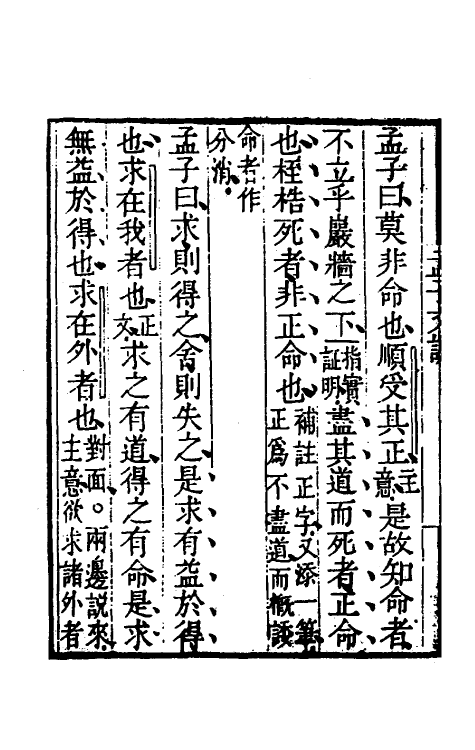 孟子曰莫非命也順受其正主意是故知命者
不立乎巖牆之下指實證明盡其道而死者正命
也桎梏死者非正命也補註正字又添一筆正爲不盡道而概諉
命者作分消
孟子曰求則得之舍則失之是求有益於得
也求在我者也正文求之有道得之有命是求
無益於得也求在外者也對面。兩邊說來主意欲求諸外者